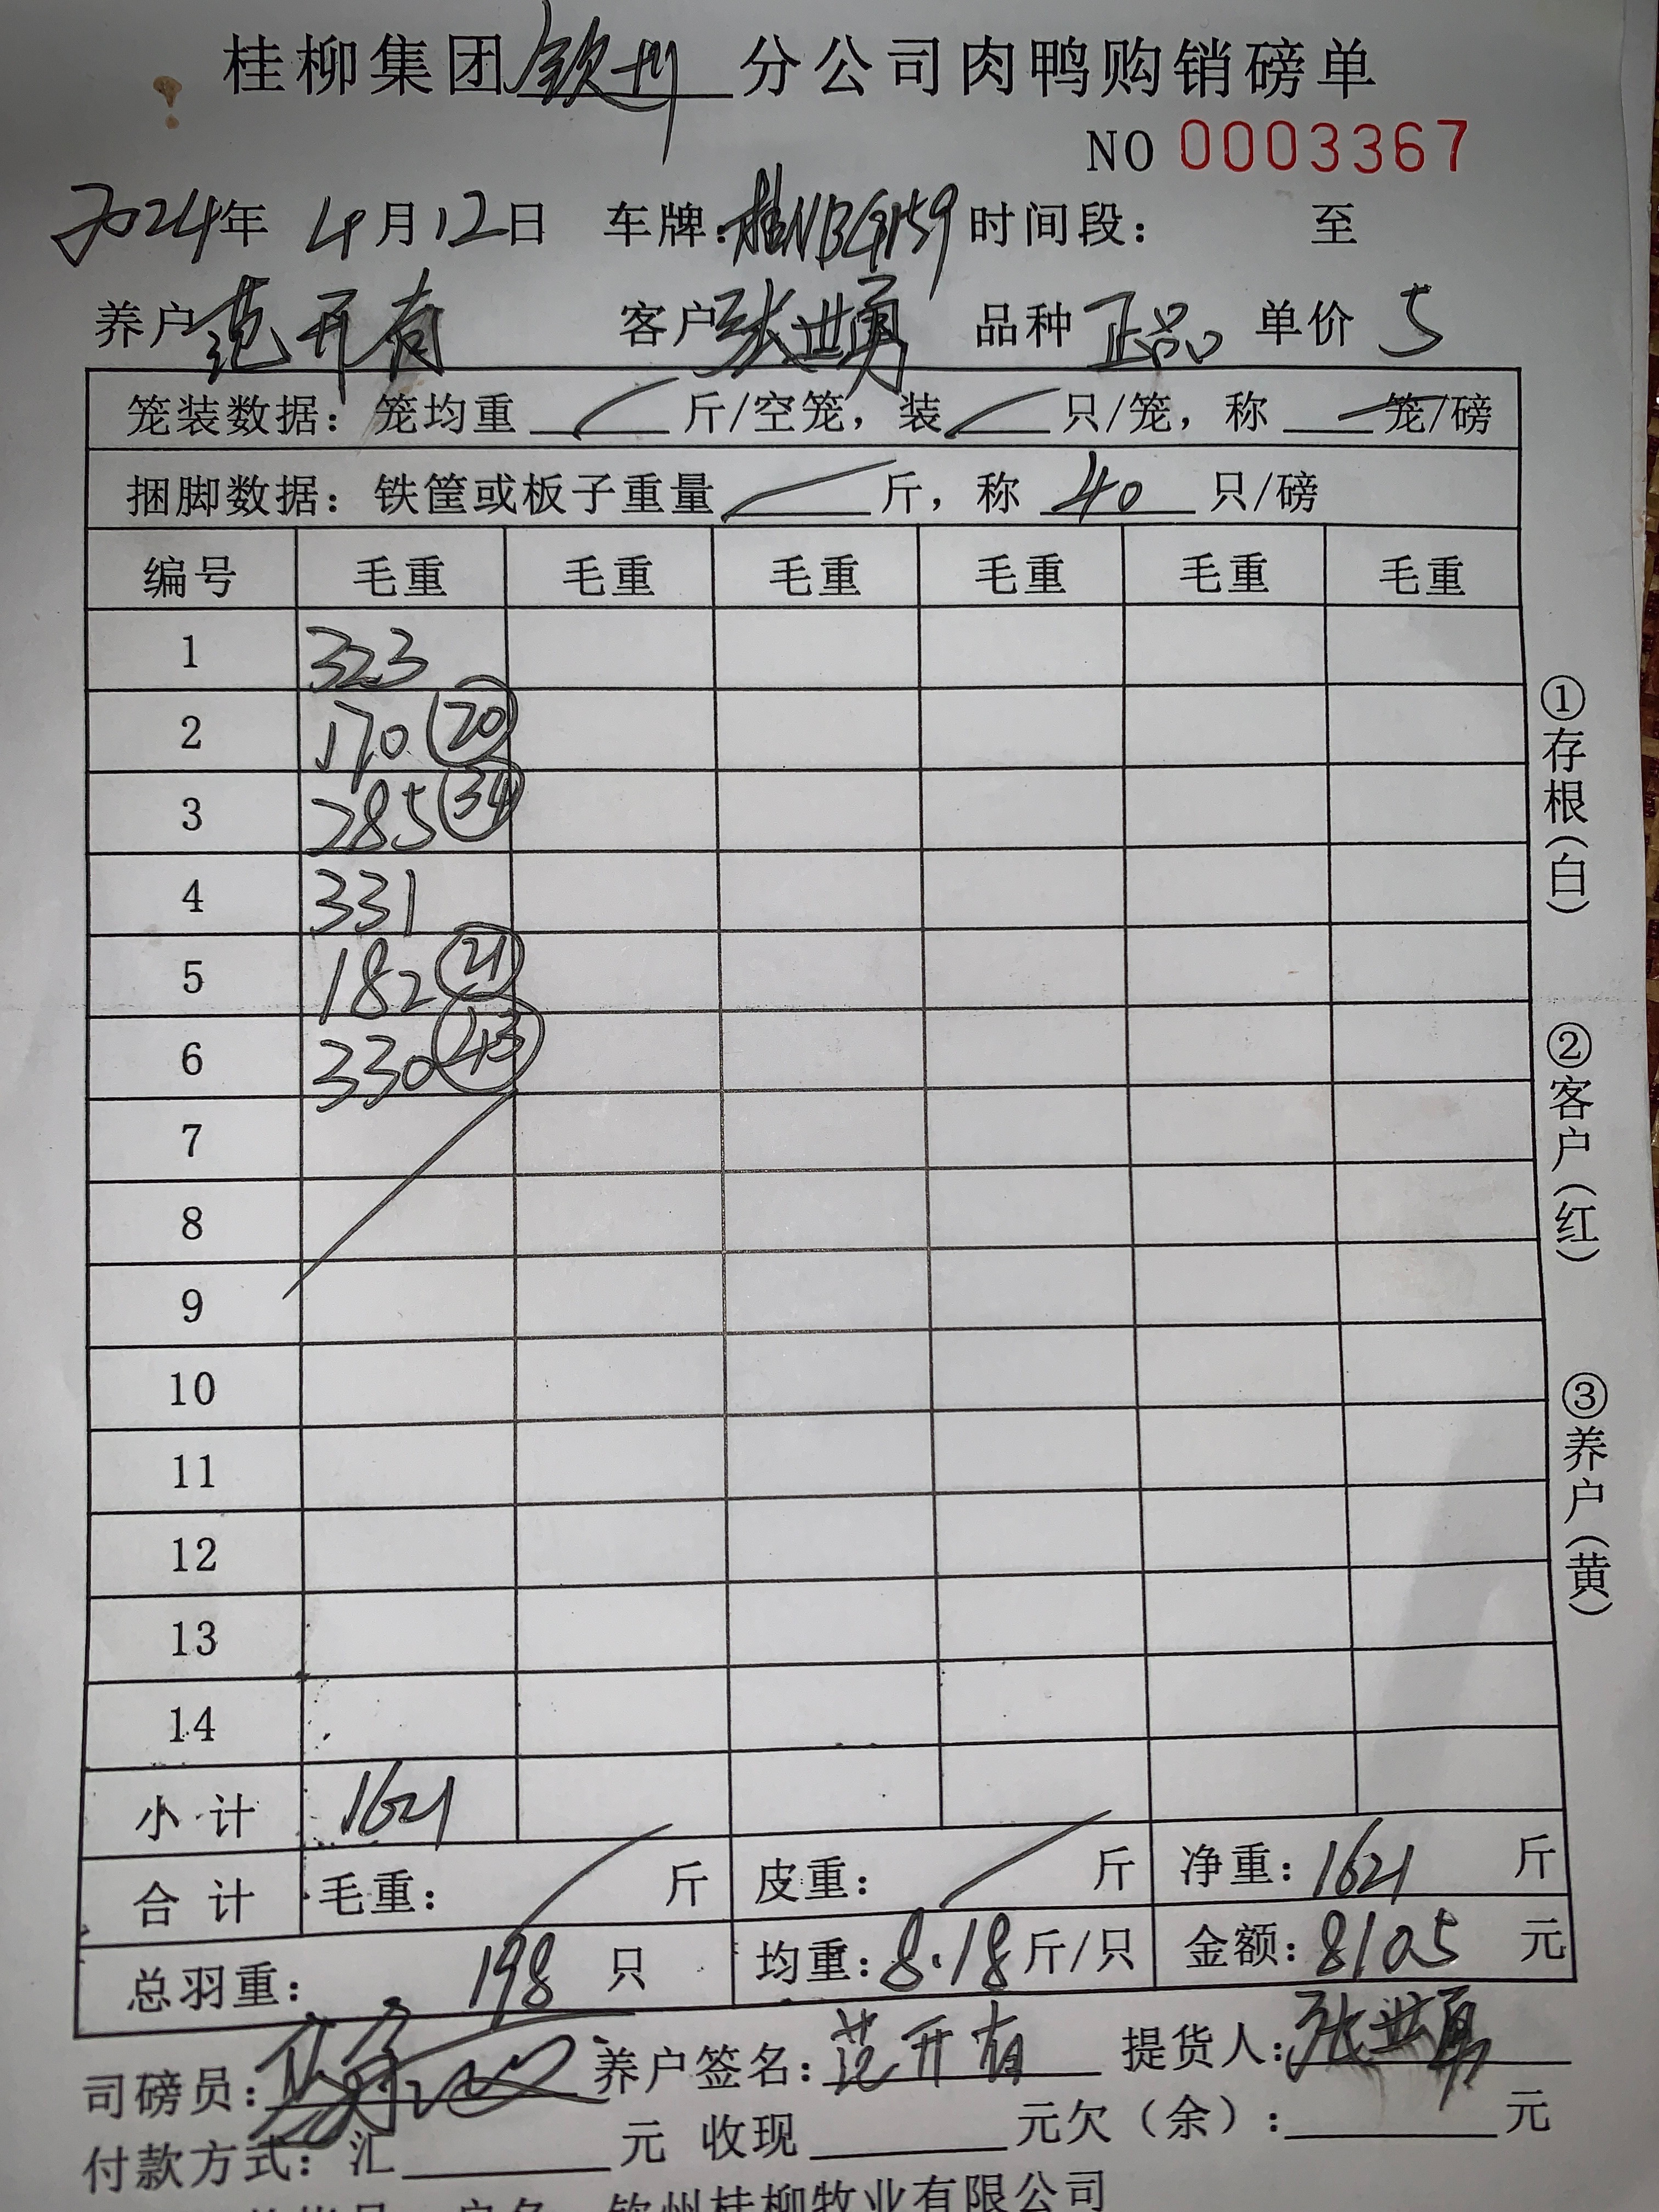 桂柳集团钦州分公司肉鸭购销磅单
NO 0003367
2024年 4月12日 车牌:桂NBG159 时间段: 至
养户 范开有 客户 张世勇 品种 正品 单价 5
笼装数据: 笼均重 斤/空笼, 装 只/笼, 称 笼/磅
捆脚数据: 铁筐或板子重量 斤, 称 40 只/磅
编号 毛重 毛重 毛重 毛重 毛重 毛重
1 323
2 170 20
3 285 34
4 331
5 182 21
6 330 43
7
8
9
10
11
12
13
14
小计 1621
合计 毛重: 斤 皮重: 斤 净重: 1621 斤
总羽重: 198 只 均重: 8.18 斤/只 金额: 8105 元
司磅员: 养户签名: 范开有 提货人: 张世勇
付款方式: 汇 元 收现 元欠(余): 元
钦州桂柳牧业有限公司
①存根(白)
②客户(红)
③养户(黄)